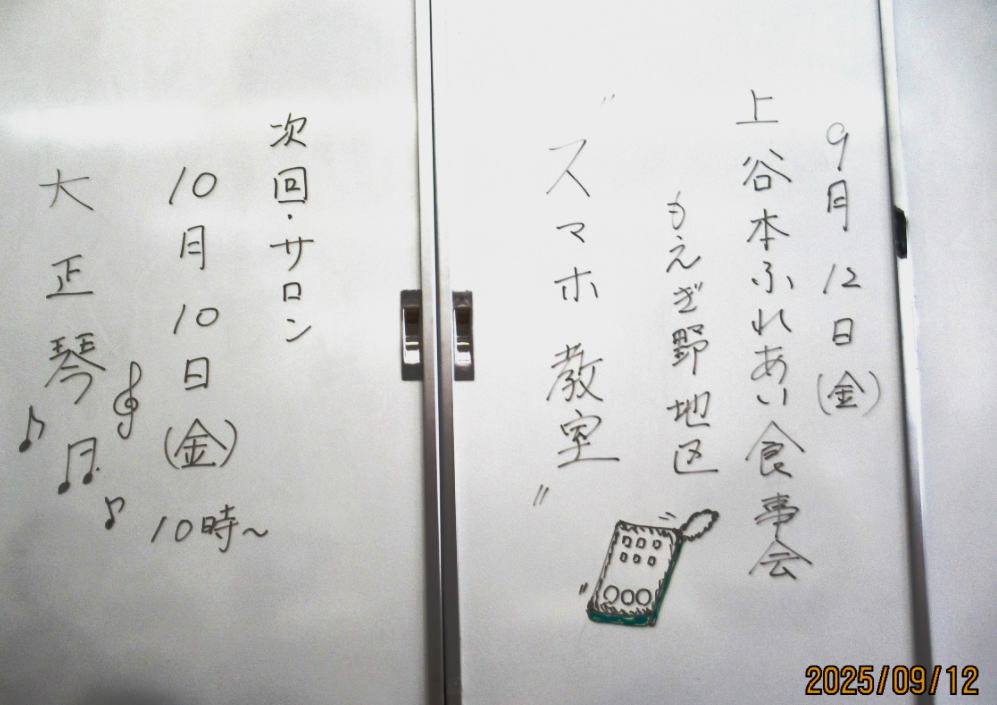 9月12日(金)
上谷本ふれあい食事会
もえぎ野地区
"スマホ教室"
次回・サロン
10月10日(金)
10時~
大正琴
2025/09/12